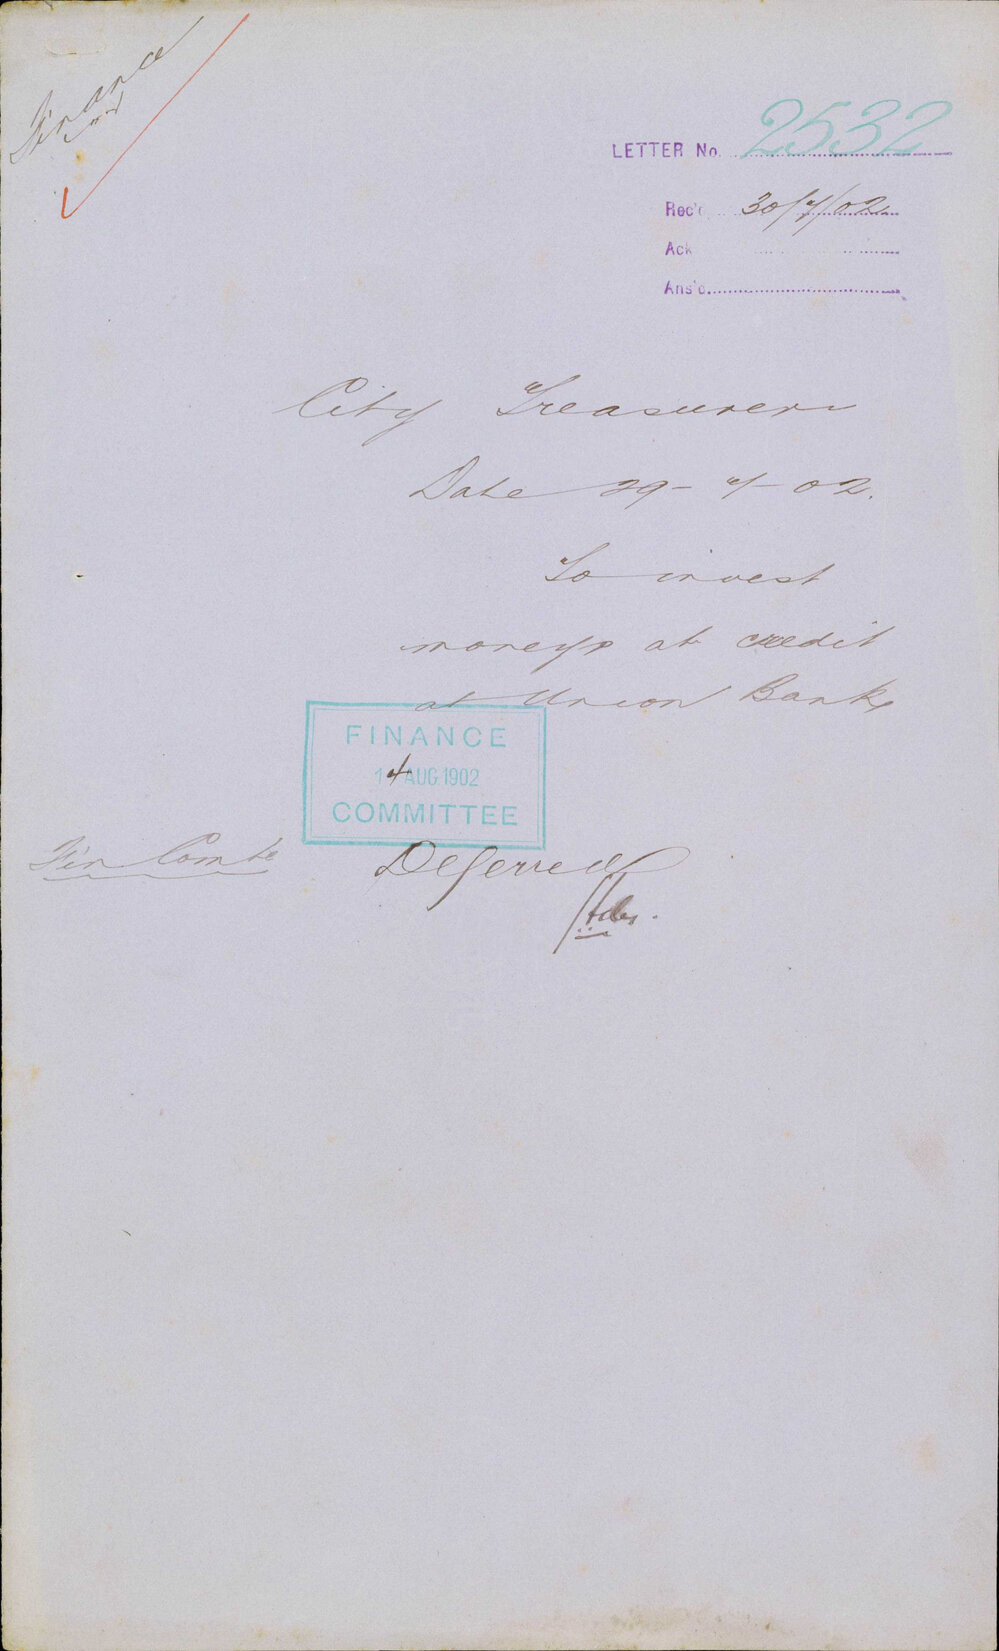 Finance
LETTER No. 2532
Rec'd 30/7/02
Ack
Ans'd
City Treasurer
Date 29-7-02.
To invest
moneys at credit
at Union Bank
FINANCE
14 AUG 1902
COMMITTEE
Fin Comte
Deferred